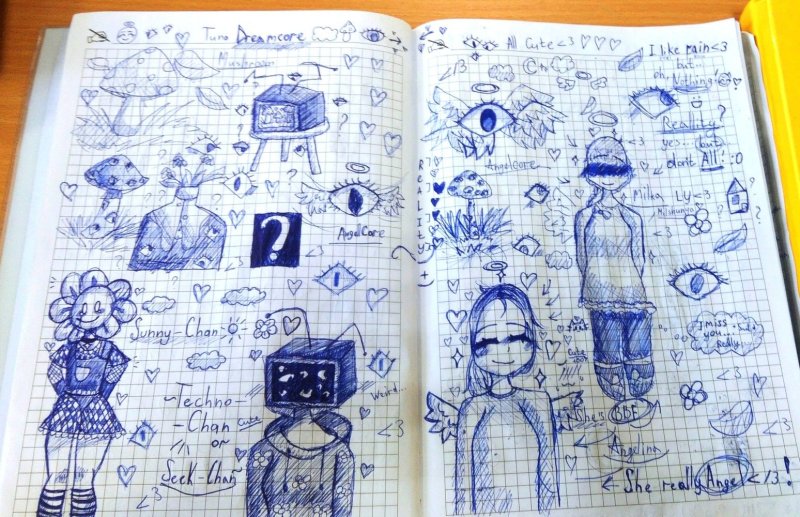 Tuno Dreamcore
Mushroom
?
AgelCore
<3
Sunny-Chan
~Techno-
Chan
Cute
or
Seek-Chan~
<3
Weird...
<3
All Cute <3
I like pain <3
but
oh, Nothing!
</3
AngelCore
Reallity?
yes... but
dont All! :O
<3
REALITY
Milka Ly <3
<3
I miss
you...
Really
<3
She's BBF
Angelina
<3
← She really Angel </3!